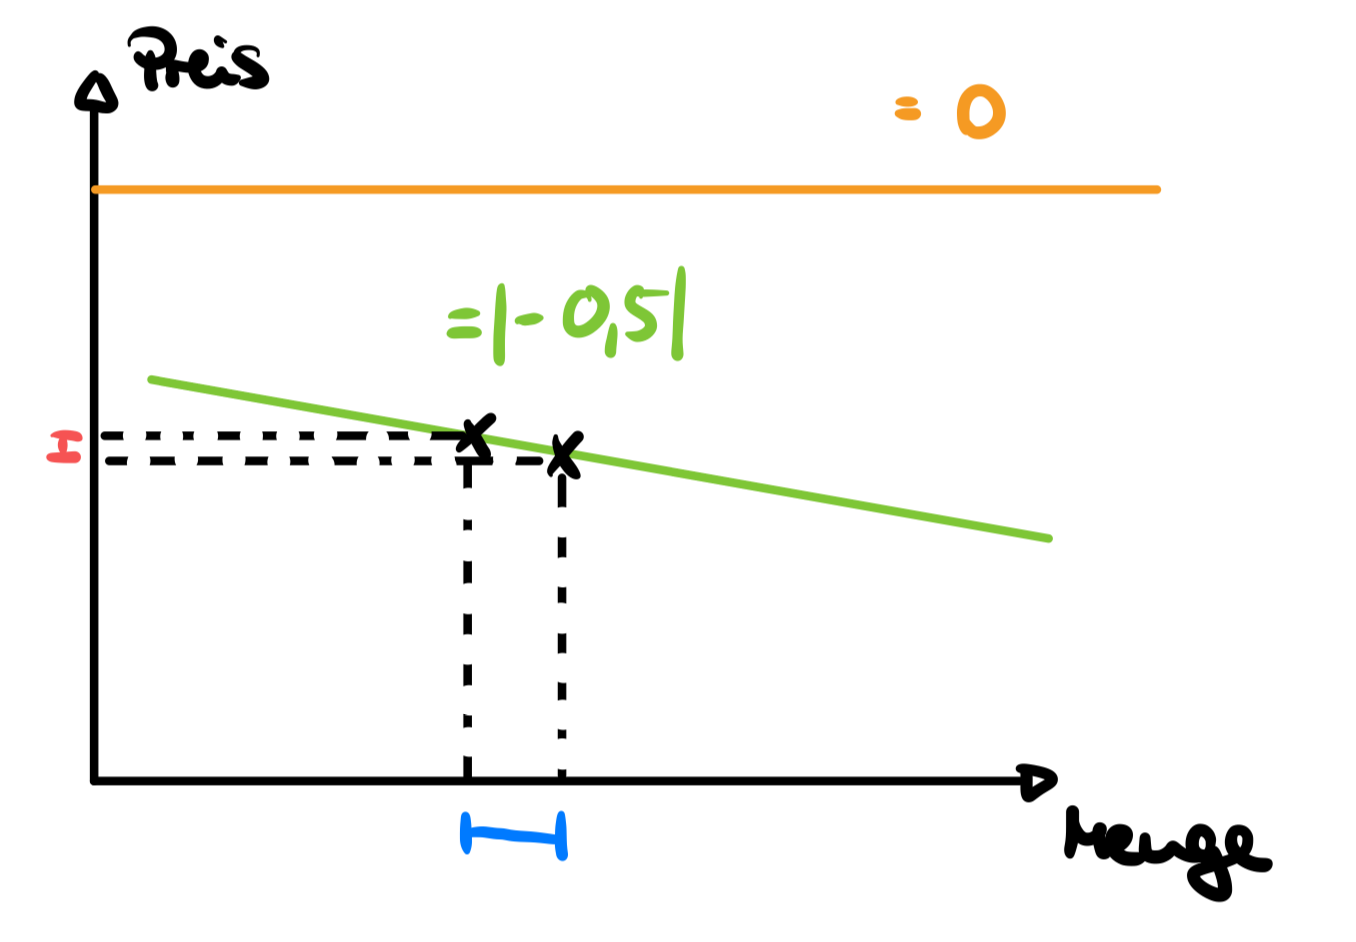 Preis
= 0
=|-0,5|
Menge